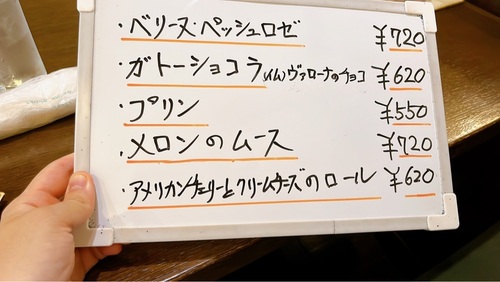 ・ベリーヌ・ペッシュロゼ ¥720
・ガトーショコラ(仏)ヴァローナのチョコ ¥620
・プリン ¥550
・メロンのムース ¥720
・アメリカンチェリーとクリームチーズのロール ¥620